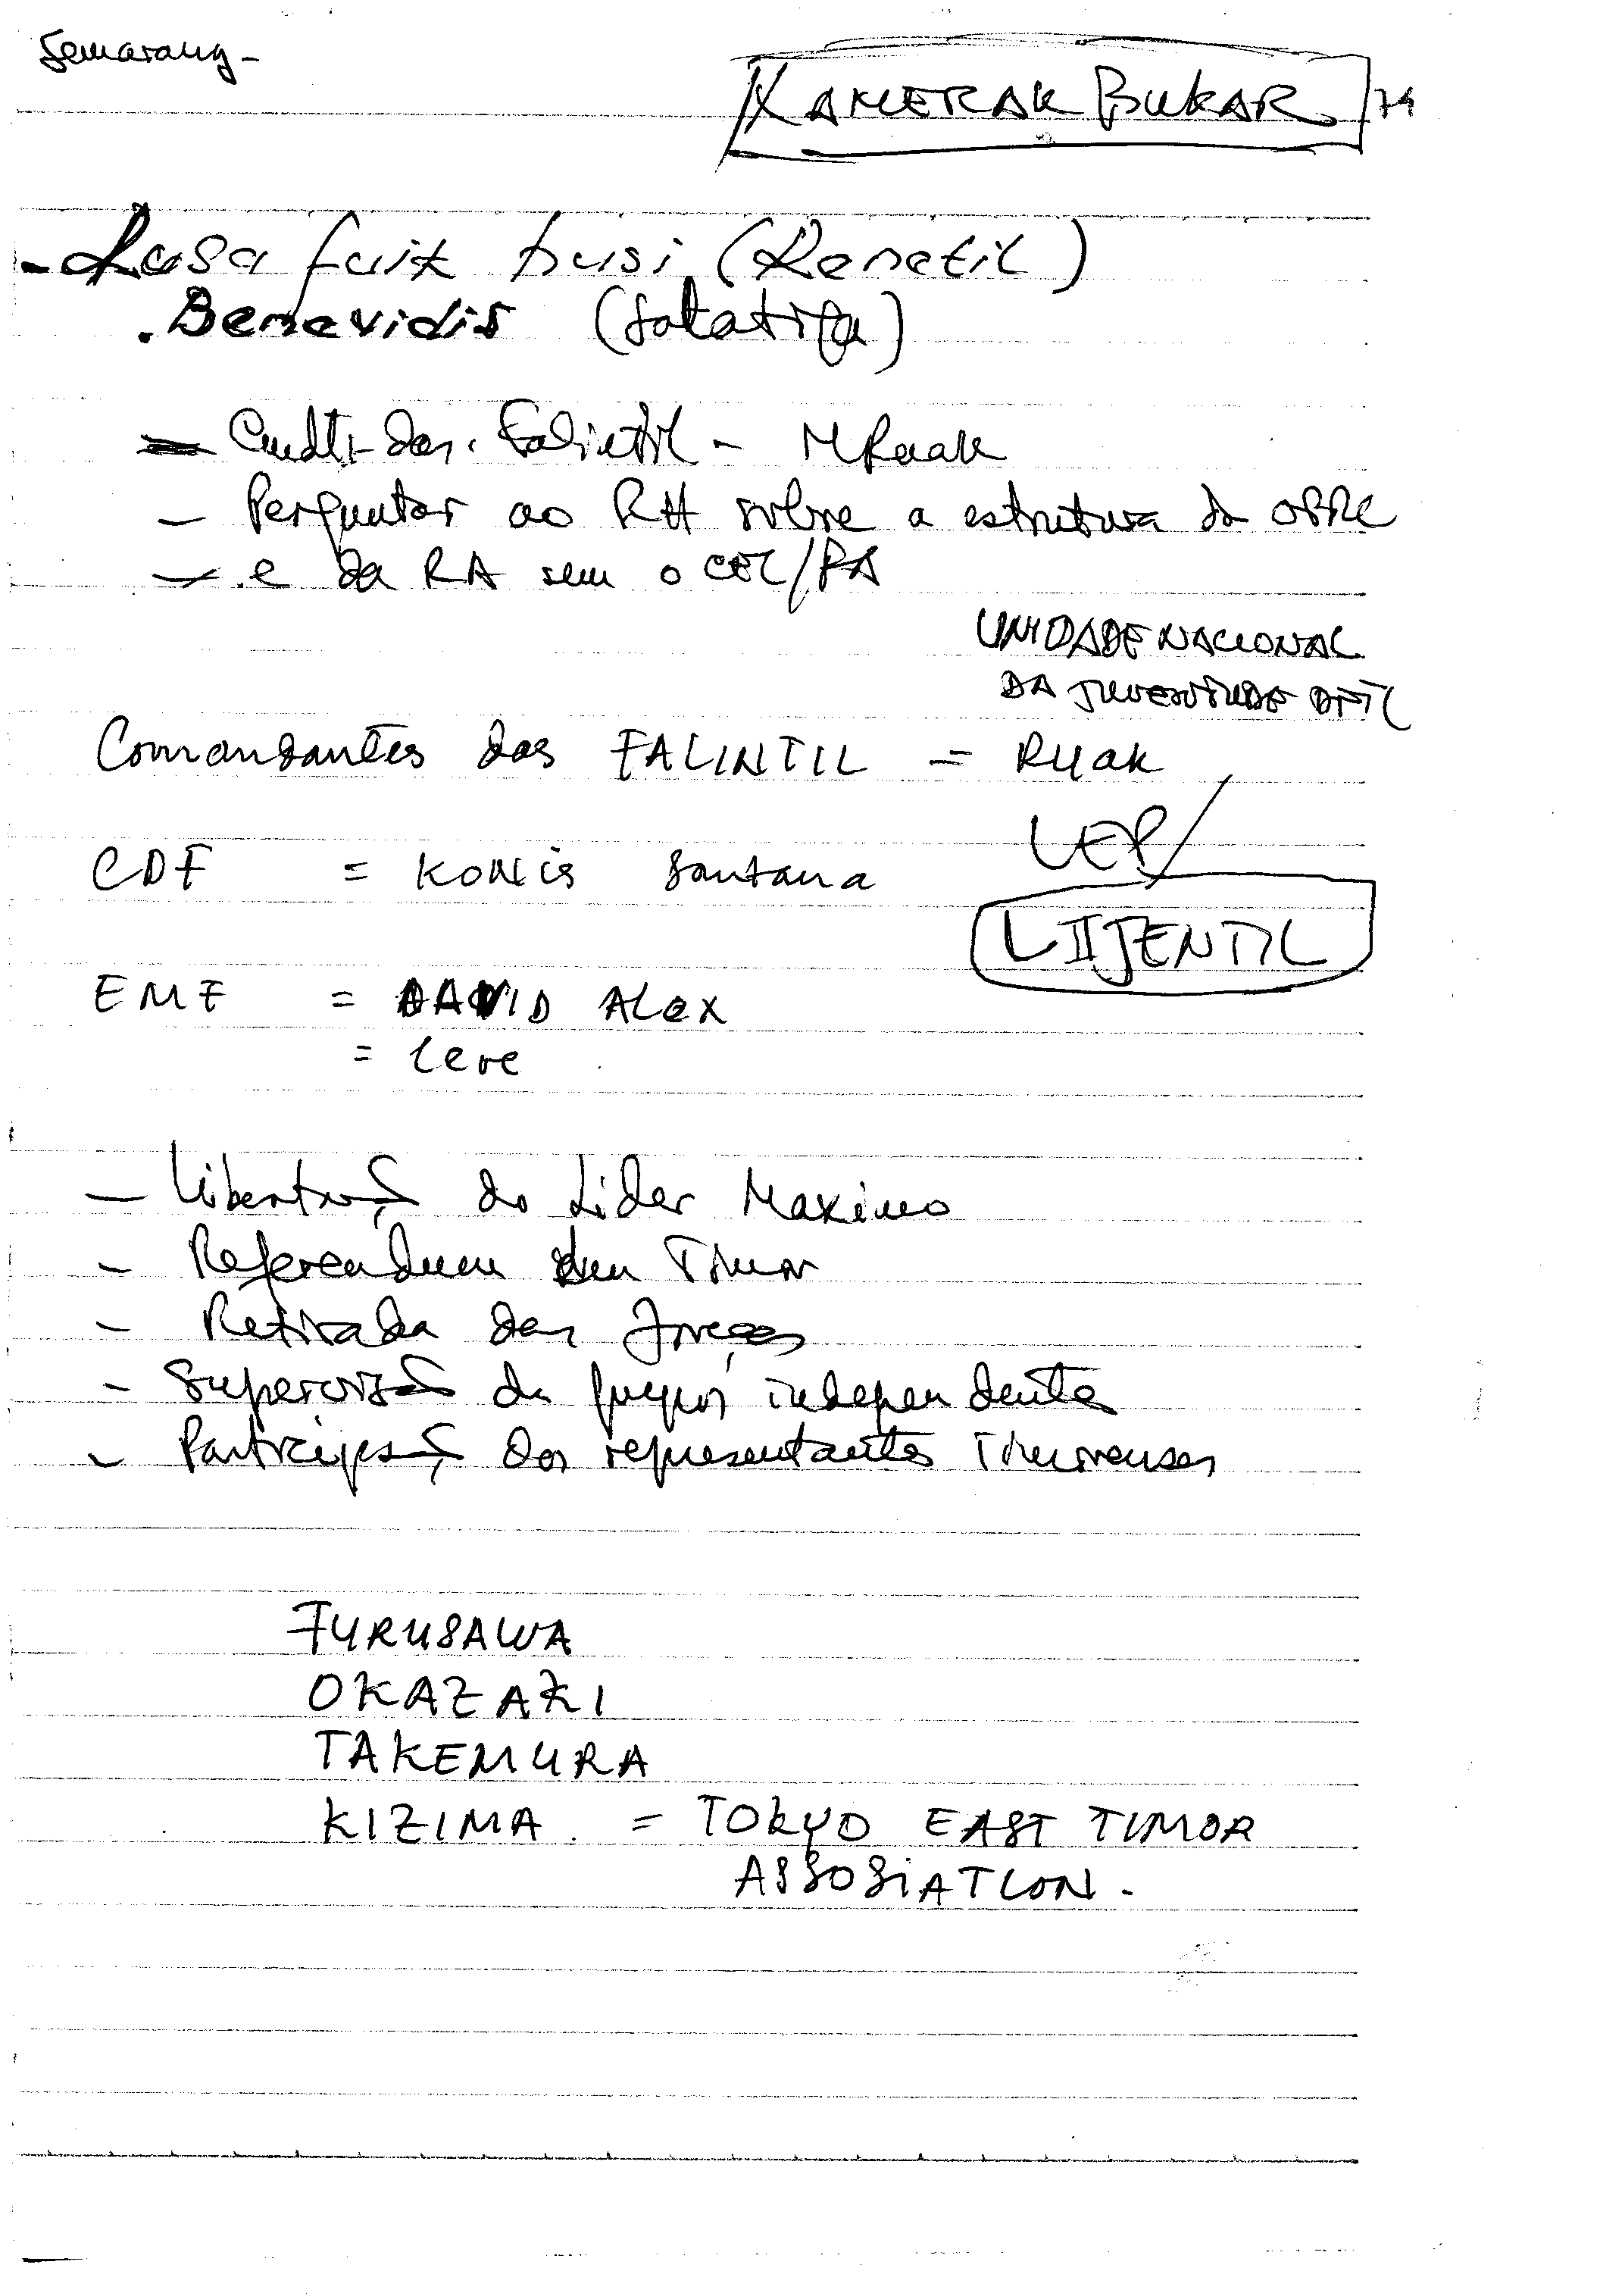 Semarang -
KAMERAK BUKAR 74
- Lasa fuik busi (Renetil)
. Benevidis (Salatiga)
- Cmdt. das. Falintil - MRuak
- Perguntar ao RH sobre a estrutura da OPRC
- e da RA sem o CEL/FA
UNIDADE NACIONAL
DA JUVENTUDE DE TL
Comandantes das FALINTIL = RUak
CDF = KONIS Santana
LEP/
LIJENTIL
EMF = DAVID ALEX
= Lere
- Libertação do Lider Maximo
- Referendum em Timor
- Retirada das forças
- Supervisão de forças independentes
- Participação dos representantes Timorenses
FURUSAWA
OKAZAKI
TAKEMURA
KIZIMA = TOKYO EAST TIMOR
ASSOSiATION.